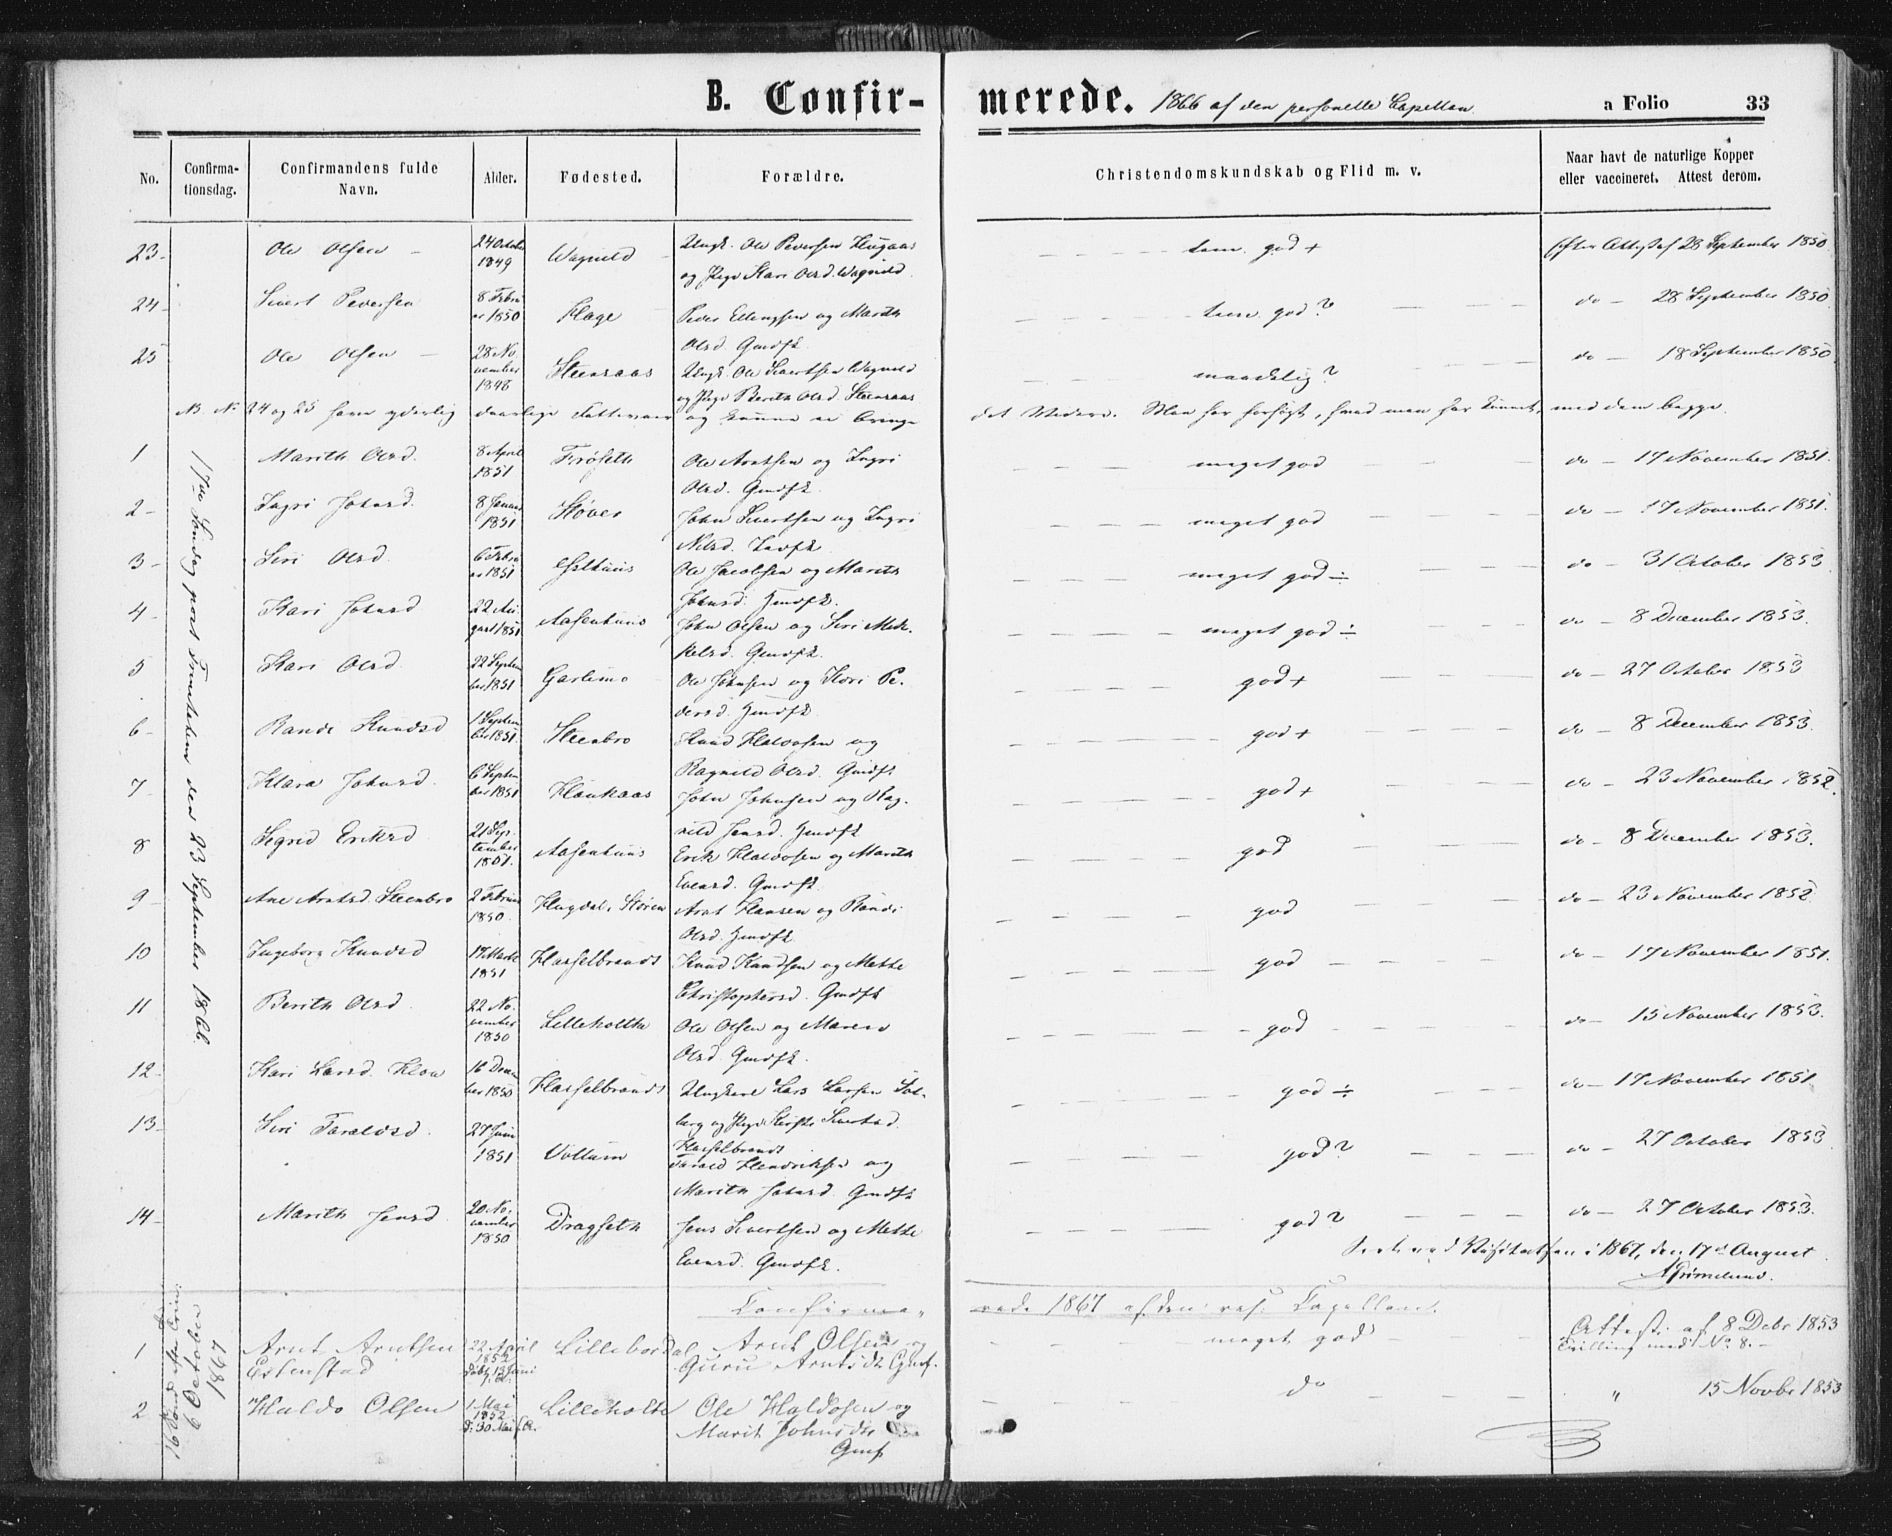 B. Confirmerede. 1866 af den personelle Capellan a Folio 33
No. Confirmationsdag. Confirmandens fulde Navn. Alder. Fødested. Forældre. Christendomskundskab og Flid m. v. Naar havt de naturlige Kopper eller vaccineret. Attest derom.
23 Ole Olsen 24 October 1849 Wagnild Ungk. Ole Pedersen Haugaas og Pige Kari Olsd. Wagnild. tem. god + Efter Attest af 28 September 1850
24 Sivert Pedersen 8 Februar 1850 Hage Peder Ellingsen og Marith Olsd. Gmdfk. tem. god? do 28 September 1850
25 Ole Olsen 28 November 1848 Steenaas Ungk. Ole Sivertsen Wagnild og Pige Berith Olsd. Steenaas maadelig? do 18 September 1850
NB. No 24 og 25 have yderlig daarlige Fatteevner og kunne ei bringe det videre. Man har forsøgt, hvad man har kunnet, med dem begge.
17de Søndag post Trinitatem den 23 September 1866.
1 Marith Olsd. 8 April 1851 Frøseth Ole Arntsen og Ingri Olsd. Gmdfk. meget god do 17 November 1851.
2 Ingri Johnsd. 8 Januar 1851 Støver John Sivertsen og Ingri Nilsd. meget god do 17 November 1851.
3 Siri Olsd 6 Februar 1851 Ole Jacobsen og Marith Johnsd. Gmdfk. meget god ÷ do 31 October 1853
4 Kari Johnsd 22 August 1851 Aasenhuus John Olsen og Siri Mikkelsd. Gmdfk. meget god ÷ do 8 December 1853.
5 Kari Olsd 22 September 1851 Garlimo Ole Johnsen og Kari Pedersd. Gmdfk. god + do 27 October 1853
6 Randi Knudsd 1 September 1851 Steenbro Knud Haldosen og Ragnild Olsd. Gmdfk god + do 8 December 1853.
7 Klara Johnsd. 6 September 1851 Haukaas John Johnsen og Ragnild Jensd. Gmdfk god + do 23 November 1852.
8 Sigrid Eriksd 21 September 1851. Aasenhuus Erik Haldosen og Marith Evensd. Gmdfk. god do 8 December 1853.
9 Ane Arntsd. Steenbro 2 Februar 1850. Hagdal, Støren Arnt Hansen og Randi Olsd. Gmdfk. god do 23 November 1852
10 Ingeborg Knudsd 17 Marts 1851 Hasselbrands Knud Knudsen og Mette Christophersd. Gmdfk god do 17 November 1851.
11 Berith Olsd. 22 November 1850 Lilleholthe Ole Olsen og Maren Olsd. Gmdfk. god do 15 November 1853.
12 Kari Larsd. Kloa 16 December 1850 Hasselbrands Ungkarl Lars Larsen Solberg og Pige Kirsti Sivertsd. Hasselbrands god ÷ do 17 November 1851
13 Siri Taraldsd. 27 Juni 1851 Vollum Tarald Hendriksen og Marith Johnsd. Gmdfk god? do 27 October 1853
14 Marith Jensd 20 November 1850 Dragseth Jens Sivertsen og Mette Evensd. Gmdfk. god? do 27 October 1853.
Seet ved Visitatsen i 1867, den 17de August
A Grimelund.
Confirmerede 1867 af den res. Capellan.
6 October 1867
1 Arnt Arntsen Estenstad 22 April 1852 Døbt 13 Juni Lillebordal Arnt Olsen og Guru Arntsdt Gmf. meget god Attest af 8 Debr 1853 Trilling med No 8.
2 Haldo Olsen 1 Mai 1852 D. 30 Mai Lilleholte Ole Haldosen og Marit Johnsdt Gmf do " 15 Novbr 1853